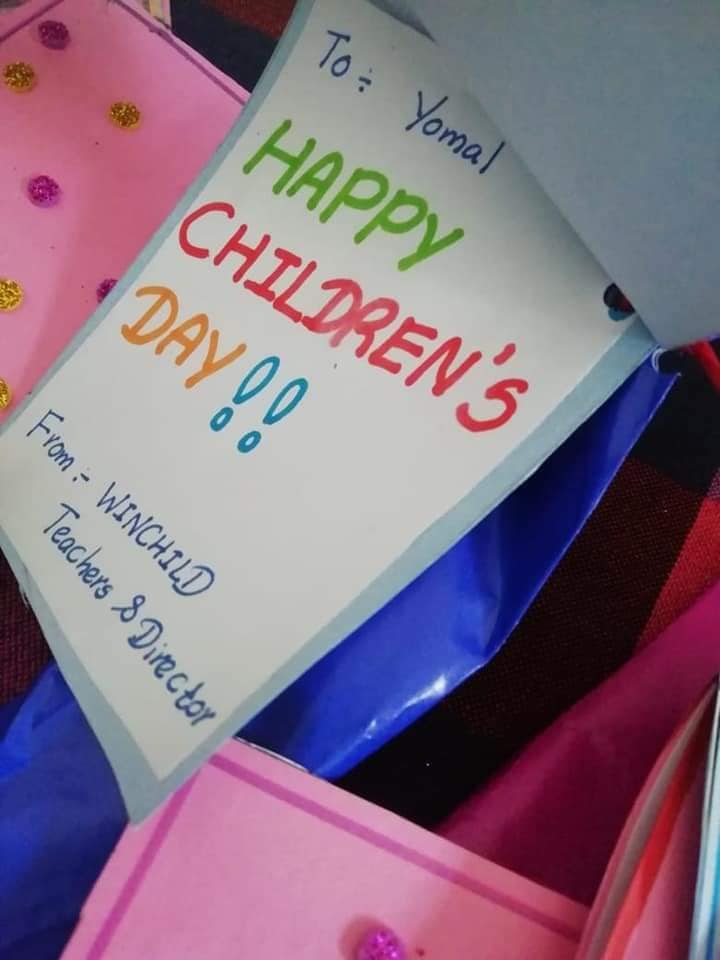 To:- Yomal
HAPPY
CHILDREN'S
DAY!!
From:- WINCHILD
Teachers & Director